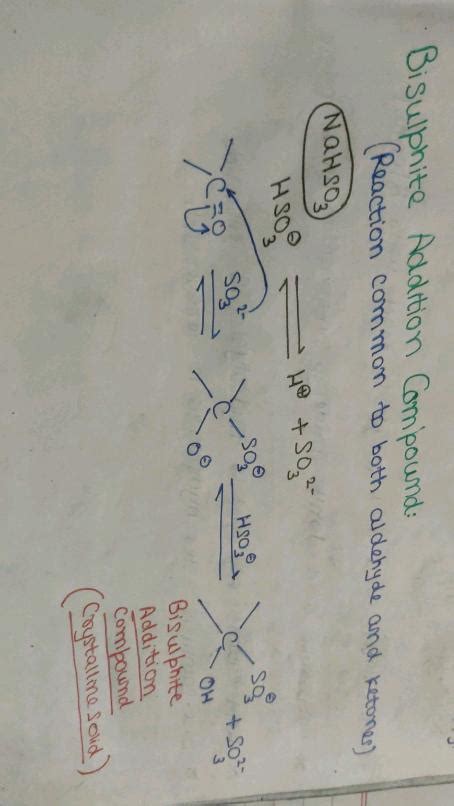 Bisulphite Addition Compound:
(Reaction common to both aldehyde and ketones)
NaHSO₃
HSO₃⊖ ⇌ H⊕ + SO₃²⁻
C=O ⇌ SO₃²⁻ C SO₃⊖ O⊖ ⇌ HSO₃⊖ C SO₃⊖ OH + SO₃²⁻
Bisulphite
Addition
compound
(Crystalline solid)